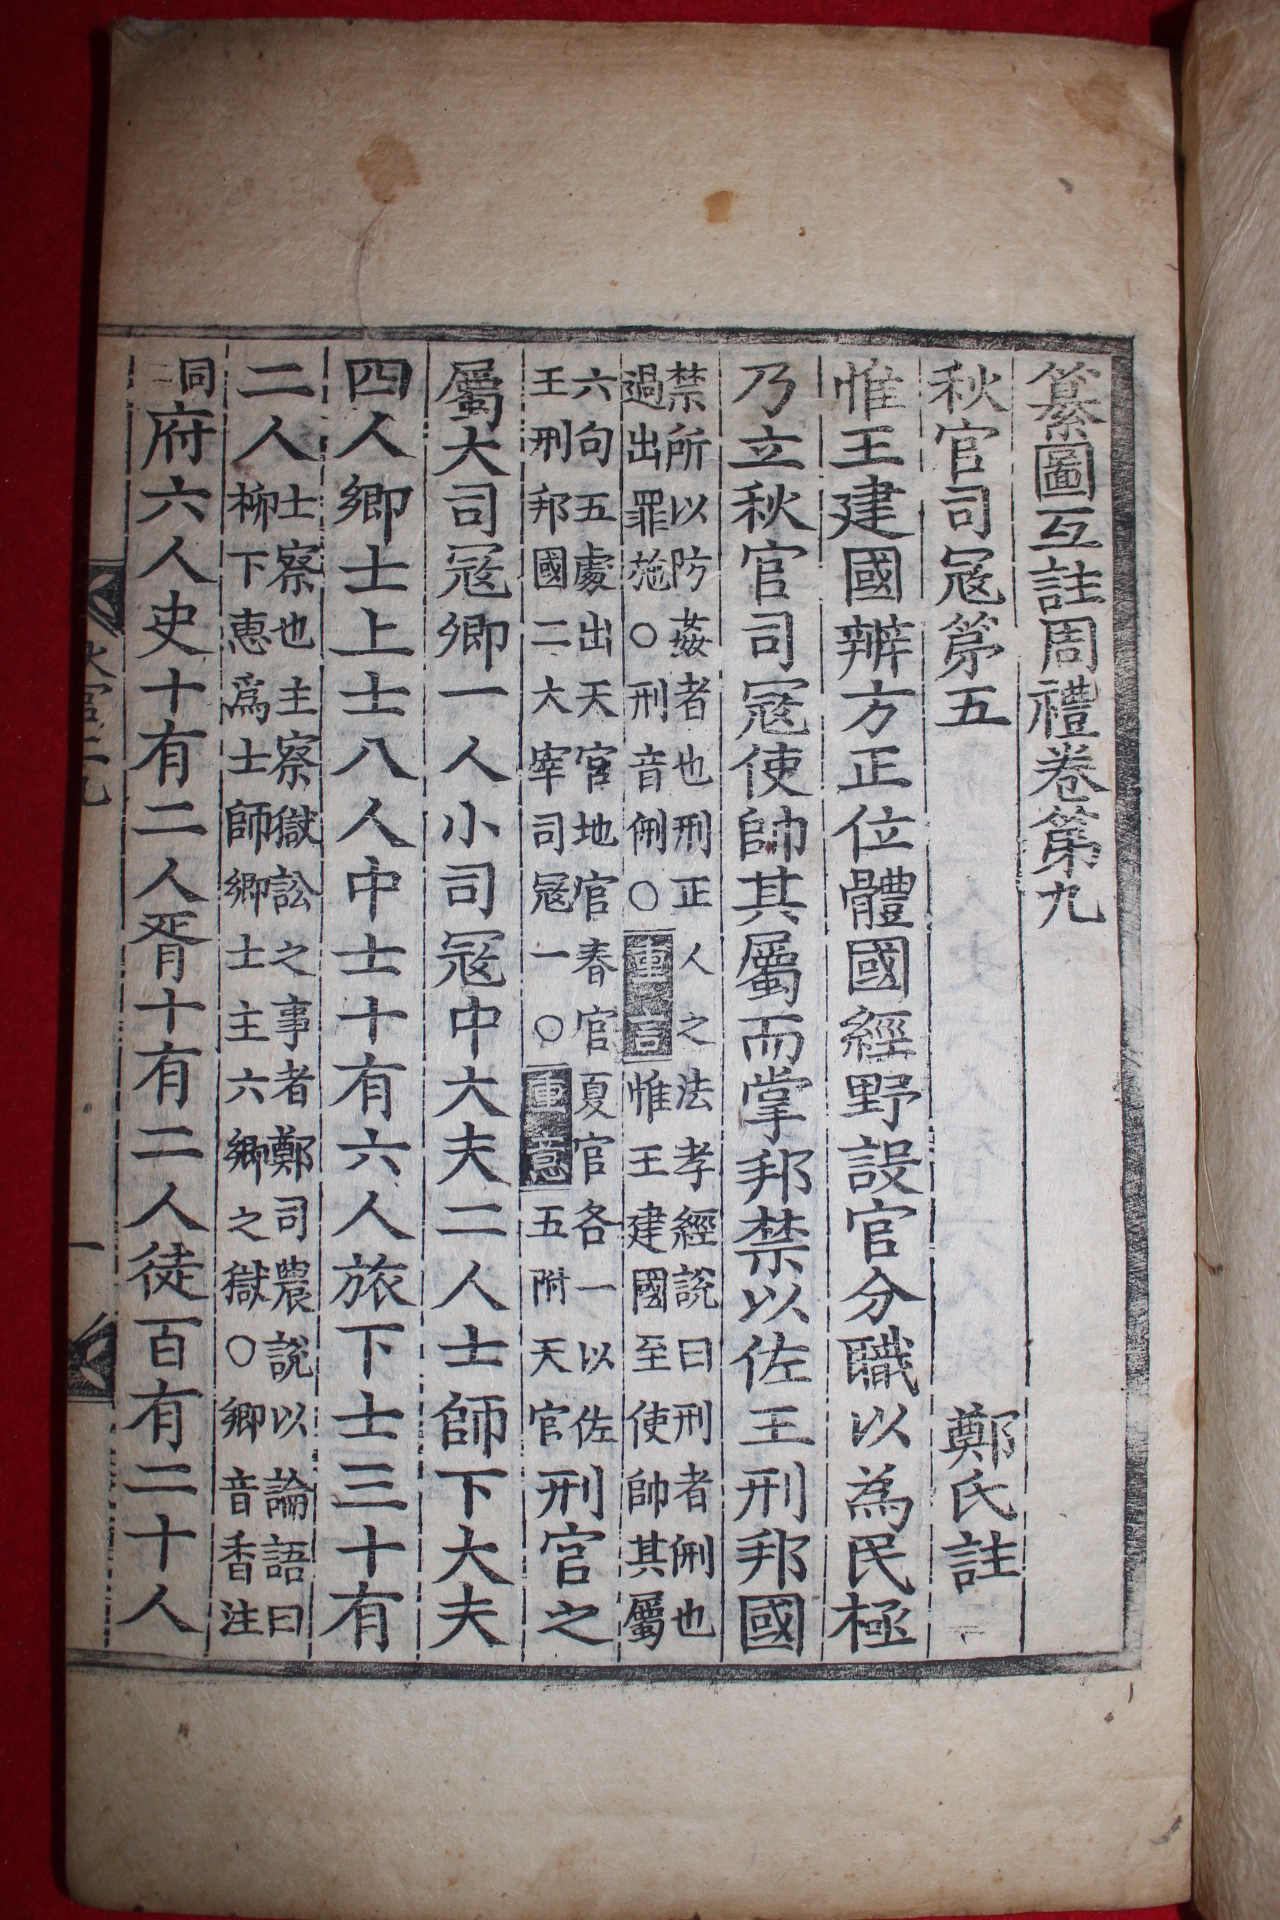 纂圖互註周禮卷第九
秋官司寇第五 鄭氏註
惟王建國辨方正位體國經野設官分職以為民極
乃立秋官司寇使帥其屬而掌邦禁以佐王刑邦國
禁所以防姦者也刑正人之法孝經說曰刑者侀也
過出罪施○刑音侀○重言惟王建國至使帥其屬
六句五處出天官地官春官夏官各一以佐
王刑邦國二大宰司寇一○重意五附天官
刑官之
屬大司寇卿一人小司寇中大夫二人士師下大夫
四人鄉士上士八人中士十有六人旅下士三十有
二人
士察也主察獄訟之事者鄭司農說以論語曰
柳下惠爲士師鄉士主六鄉之獄○鄉音香注
同
府六人史十有二人胥十有二人徒百有二十人
一